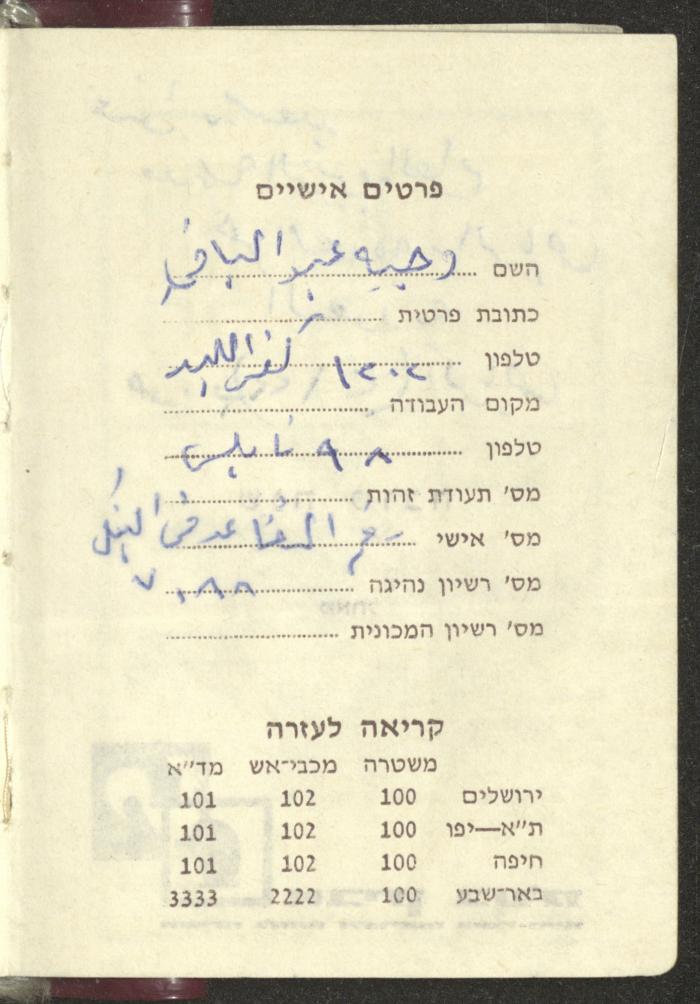 פרטים אישיים
השם وجيه عبد الباقي
כתובת פרטית
טלפון ١٢٠٢ كفر اللبد
מקום העבודה
טלפון ٩٨ نابلس
מס׳ תעודת זהות
מס׳ אישי رقم التقاعد في البنك
מס׳ רשיון נהיגה ٧٠٨٨
מס׳ רשיון המכונית
קריאה לעזרה
משטרה מכבי־אש מד״א
ירושלים 100 102 101
ת״א—יפו 100 102 101
חיפה 100 102 101
באר־שבע 100 2222 3333